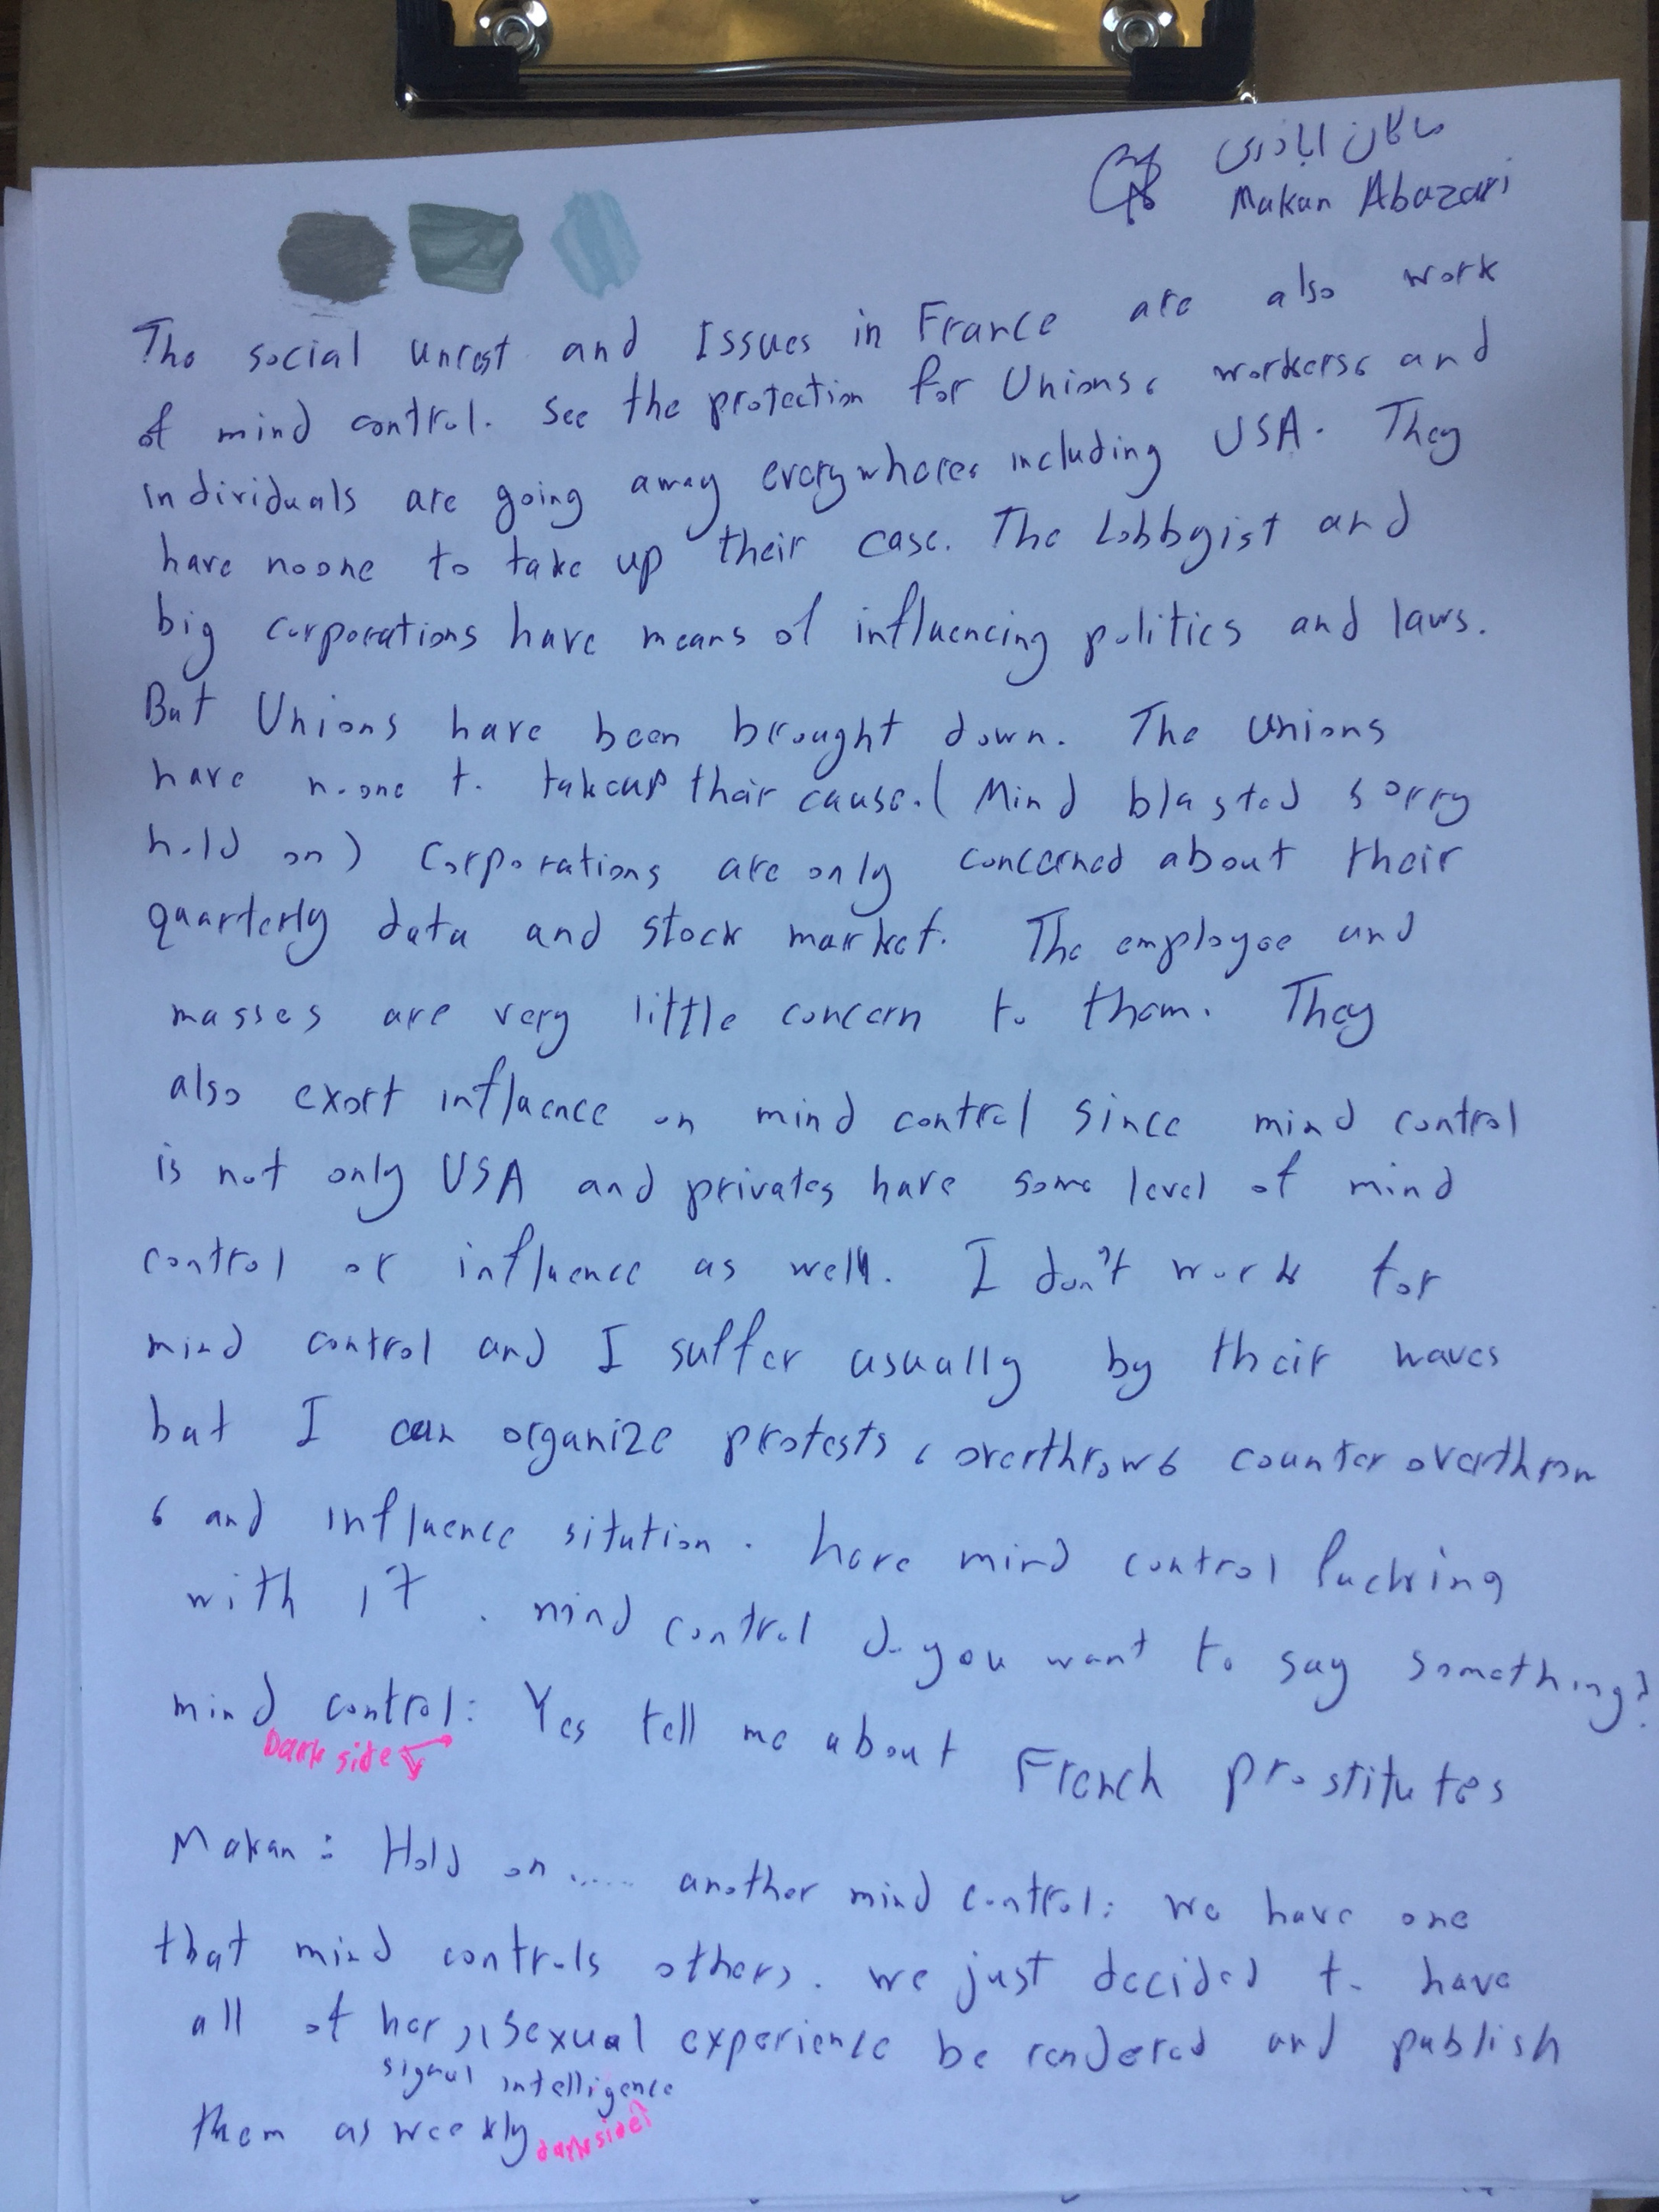 ماکان اباذری
Makan Abazari
The social unrest and Issues in France are also work
of mind control. See the protection for Unions، workers، and
individuals are going away everywhere، including USA. They
have noone to take up their case. The Lobbyist and
big corporations have means of influencing politics and laws.
But Unions have been brought down. The Unions
have noone to takeup their cause. (Mind blasted sorry
hold on) Corporations are only concerned about their
quarterly data and stock market. The employee and
masses are very little concern to them. They
also exert influence on mind control since mind control
is not only USA and privates have some level of mind
control or influence as well. I don't work for
mind control and I suffer usually by their waves
but I can organize protests، overthrow، counter overthrow
، and influence sitution. have mind control fucking
with it. mind control do you want to say something?
mind control: Yes tell me about French prostitutes
Dark side
Makan: Hold on ..... another mind control: we have one
that mind controls others. we just decided to have
all of her sexual experience be rendered and publish
signal intelligence
them as weekly
dark side